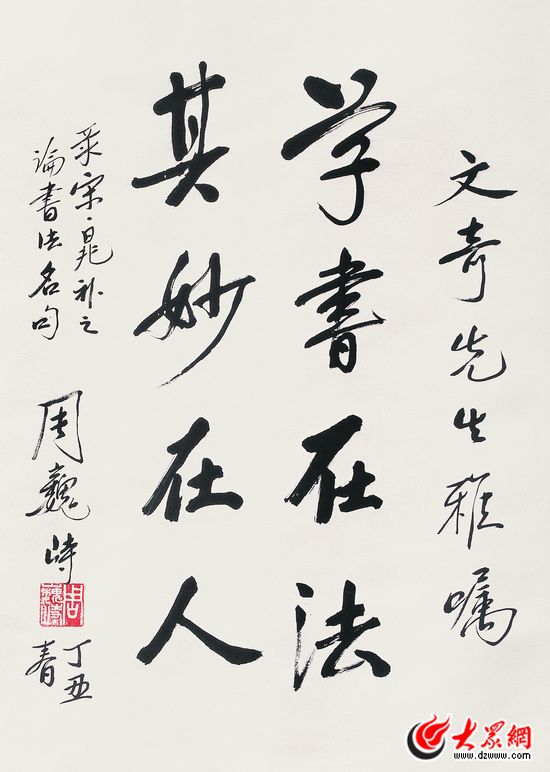 文奇先生雅嘱
学書在法
其妙在人
采宋·晁补之
论書法名句
周巍峙
丁丑
春
大众網
www.dzwww.com